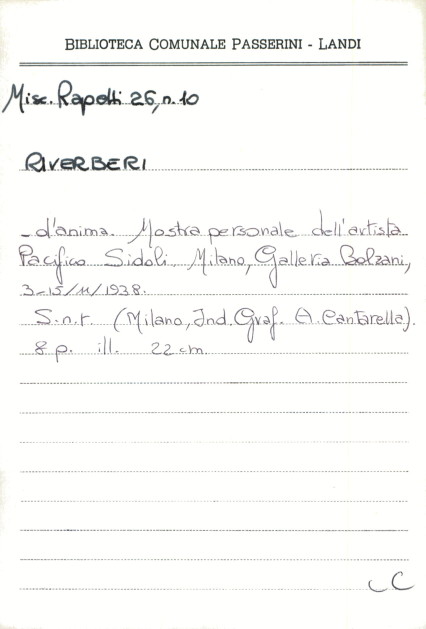 BIBLIOTECA COMUNALE PASSERINI - LANDI
Misc. Rapetti 26, n. 10
RIVERBERI
- d'anima. Mostra personale dell'artista
Pacifico Sidoli, Milano, Galleria Bolzani,
3-15/11/1938.
S.n.t. (Milano, Ind. Graf. A. Cantarella).
8 p. ill. 22 cm.
C